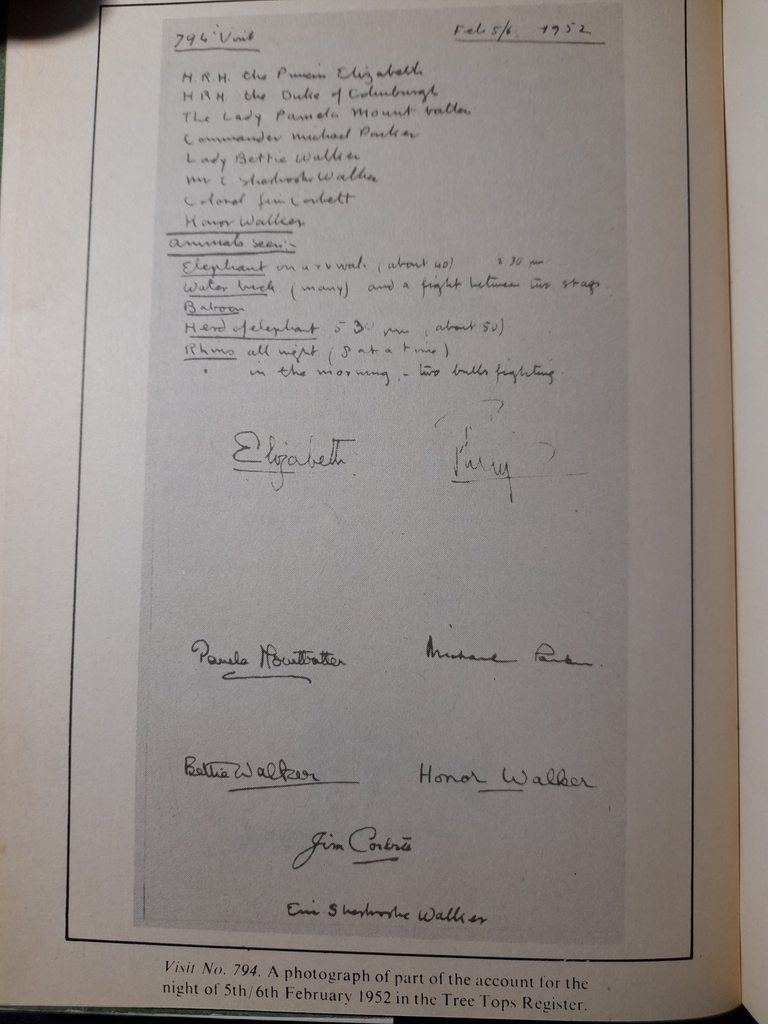 794th Visit Feb 5/6 1952
H.R.H. the Princess Elizabeth
H.R.H. the Duke of Edinburgh
The Lady Pamela Mountbatten
Commander Michael Parker
Lady Bettie Walker
Mr C Sherbrooke Walker
Colonel Jim Corbett
Honor Walker
Animals seen:-
Elephant on arrival, (about 40) 2 30 pm
Water buck (many) and a fight between two stags
Baboon
Herd of elephant 5 30 pm (about 50)
Rhino all night (8 at a time)
" in the morning - two bulls fighting
Elizabeth Philip
Pamela Mountbatten Michael Parker
Bettie Walker Honor Walker
Jim Corbett
Eric Sherbrooke Walker
Visit No. 794. A photograph of part of the account for the
night of 5th/6th February 1952 in the Tree Tops Register.